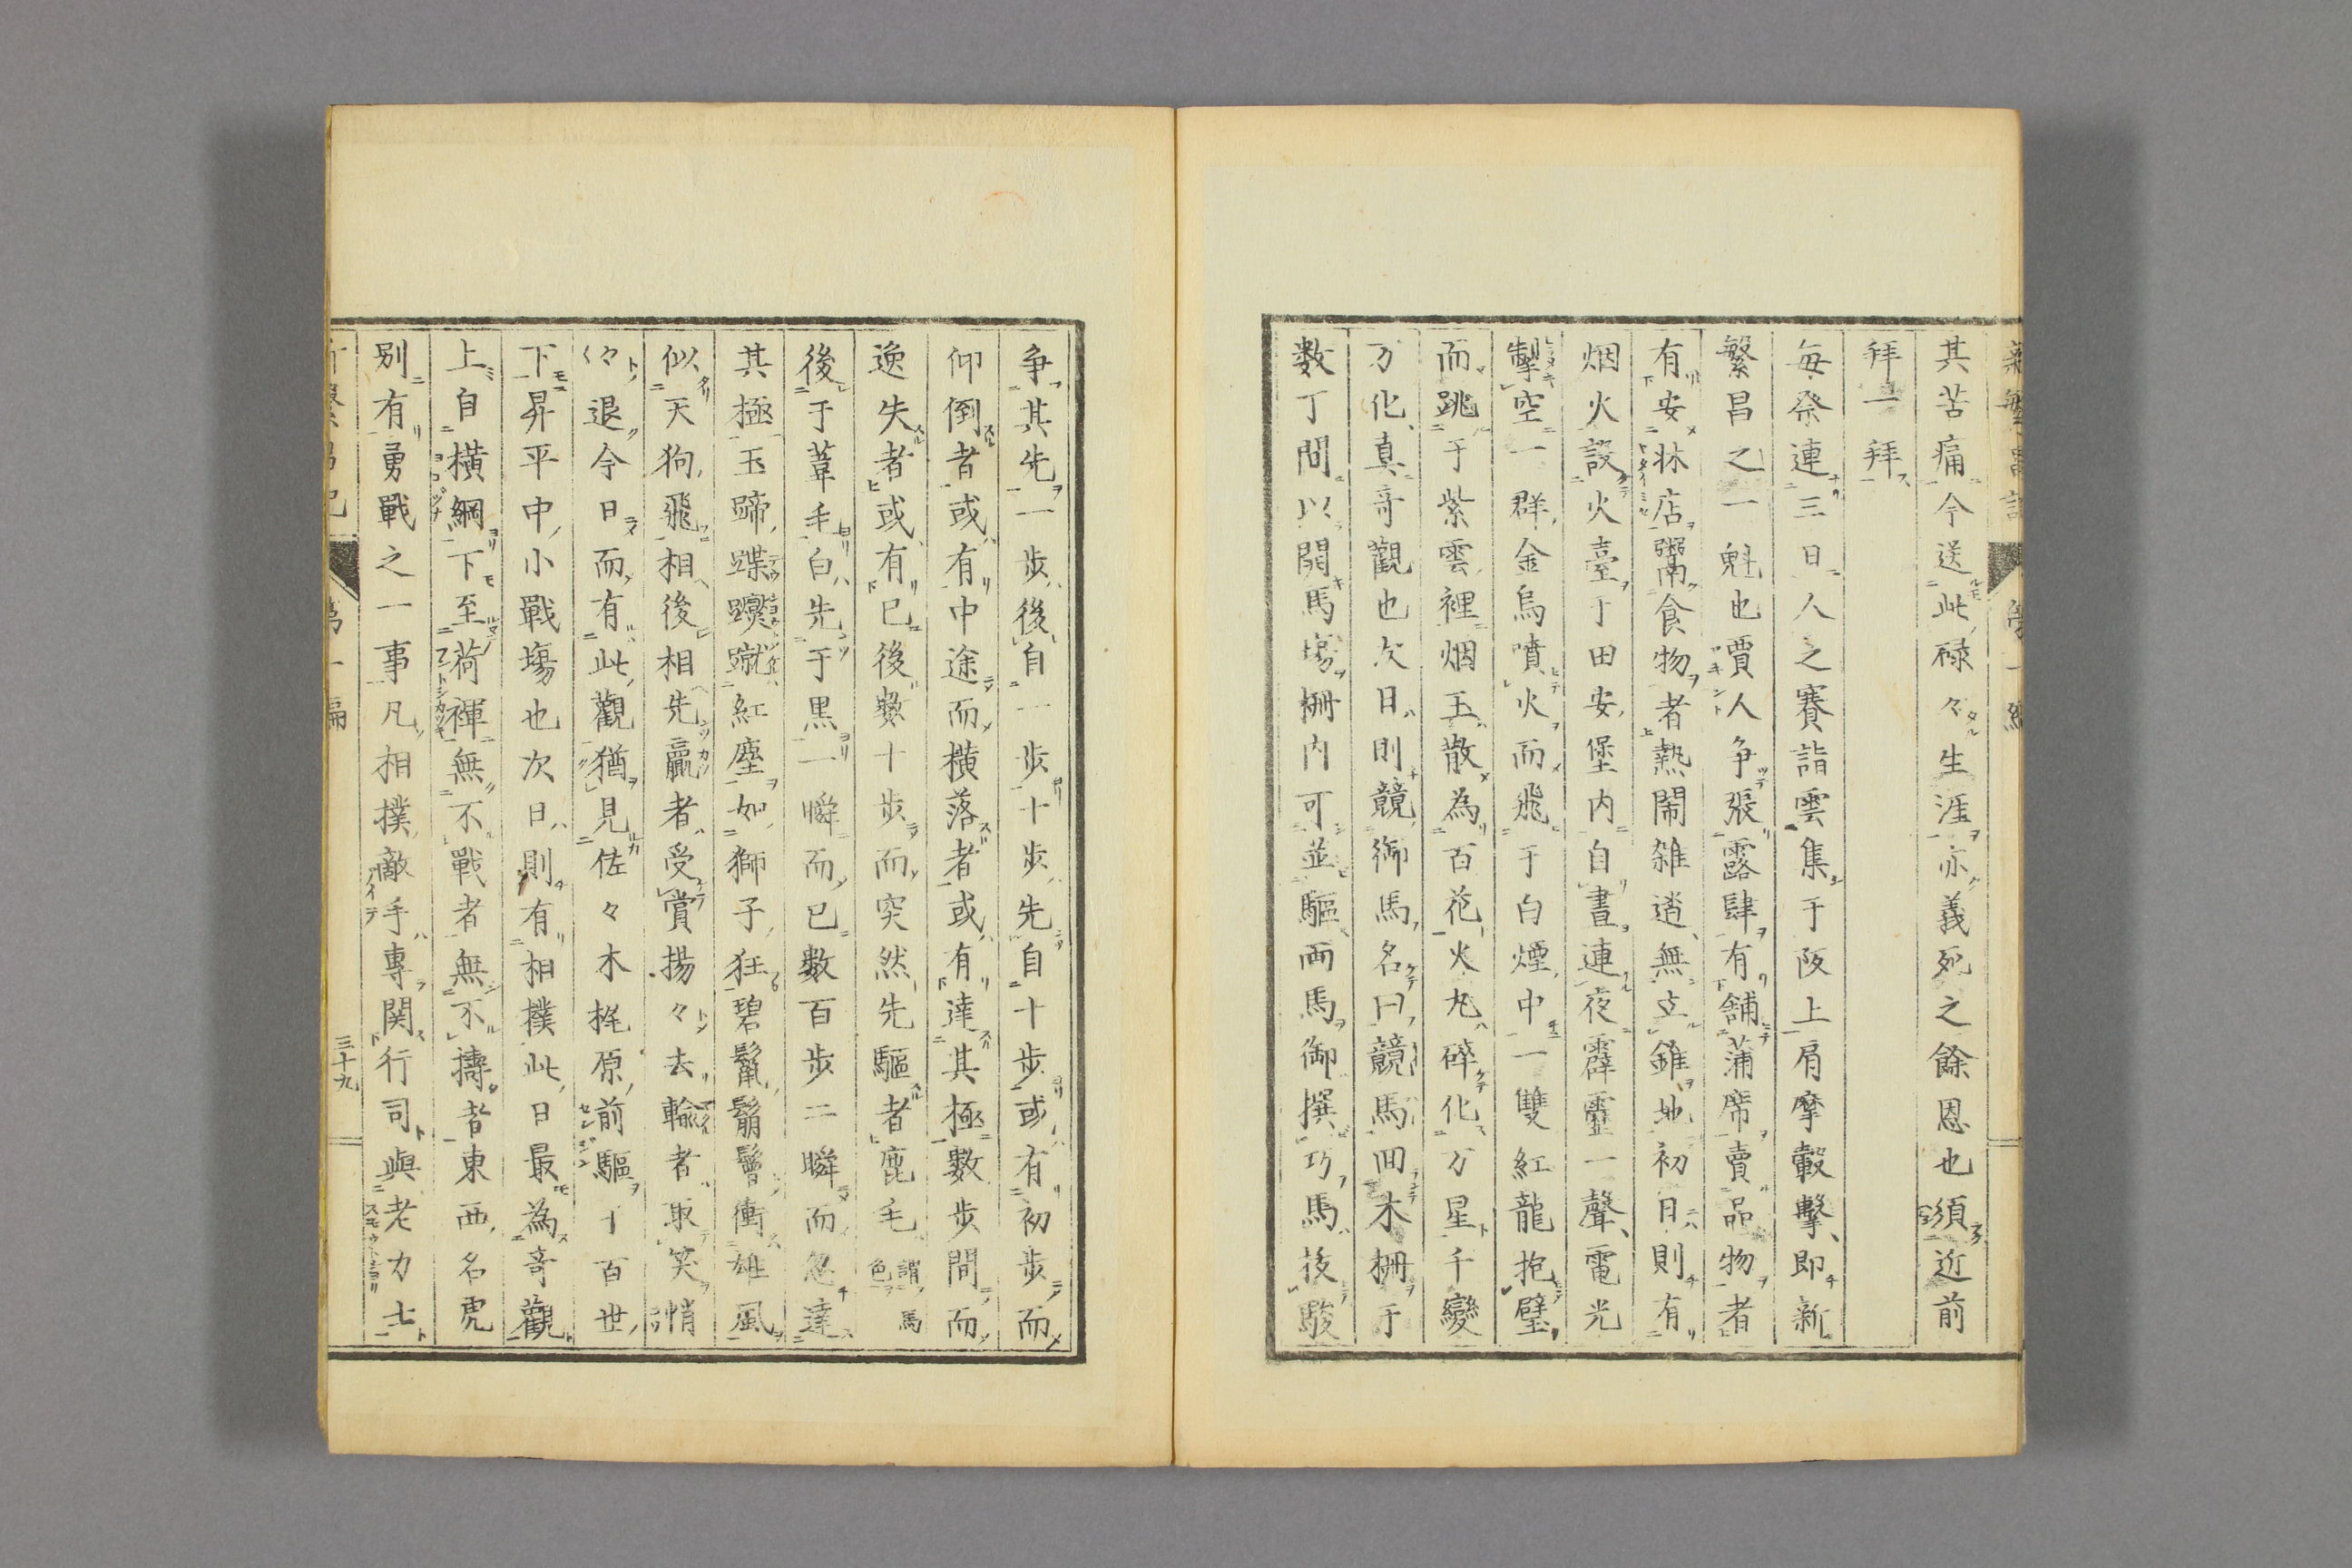 其苦痛今送此碌々生涯亦義死之餘恩也須近前
拜一拜
每祭連三日人之賽詣雲集于阪上肩摩轂擊即新
繁昌之一魁也賈人争張露肆有舖蒲席賣品物者
有安牀店鬻食物者熱閙雑遝無立錐地初日則有
烟火設火臺于田安堡内自晝連夜霹靂一聲電光
掣空一群金烏噴火而飛于白煙中一雙紅龍抱璧
而跳于紫雲裡烟玉散為百花火丸碎化万星千變
万化真奇觀也次日則競御馬名曰競馬回木柵于
数丁間以開馬場柵内可並驅両馬御撰巧馬後駿
争其先一歩後自一歩十歩先自十歩或有初歩而
仰倒者或有中途而横落者或有達其極數歩間而
逸失者或有已後數十歩而突然先驅者鹿毛謂馬色
後于葦毛白先于黒一瞬而已數百歩二瞬而忽達
其極玉蹄蹀躞蹴紅塵如獅子狂碧鬣鬅鬙衝雄風
似天狗飛相後相先贏者受賞揚々去輸者取笑悄
々退今日而有此觀猶見佐々木梶原前驅十百世
下昇平中小戰場也次日則有相撲此日最為奇觀
上自横綱下至荷褌無不戰者無不擣者東西名虎
別有勇戰之一事凡相撲敵手專関行司與老力士
三十九